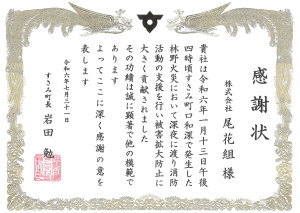 感謝状
株式会社
尾花組 様
貴社は令和六年一月十三日午後
四時頃すさみ町口和深で発生した
林野火災において深夜に渡り消防
活動の支援を行い被害拡大防止に
大きく貢献されました
その功績は誠に顕著で他の模範で
あります
よってここに深く感謝の意を
表します
令和六年七月三十一日
すさみ町長 岩田 勉